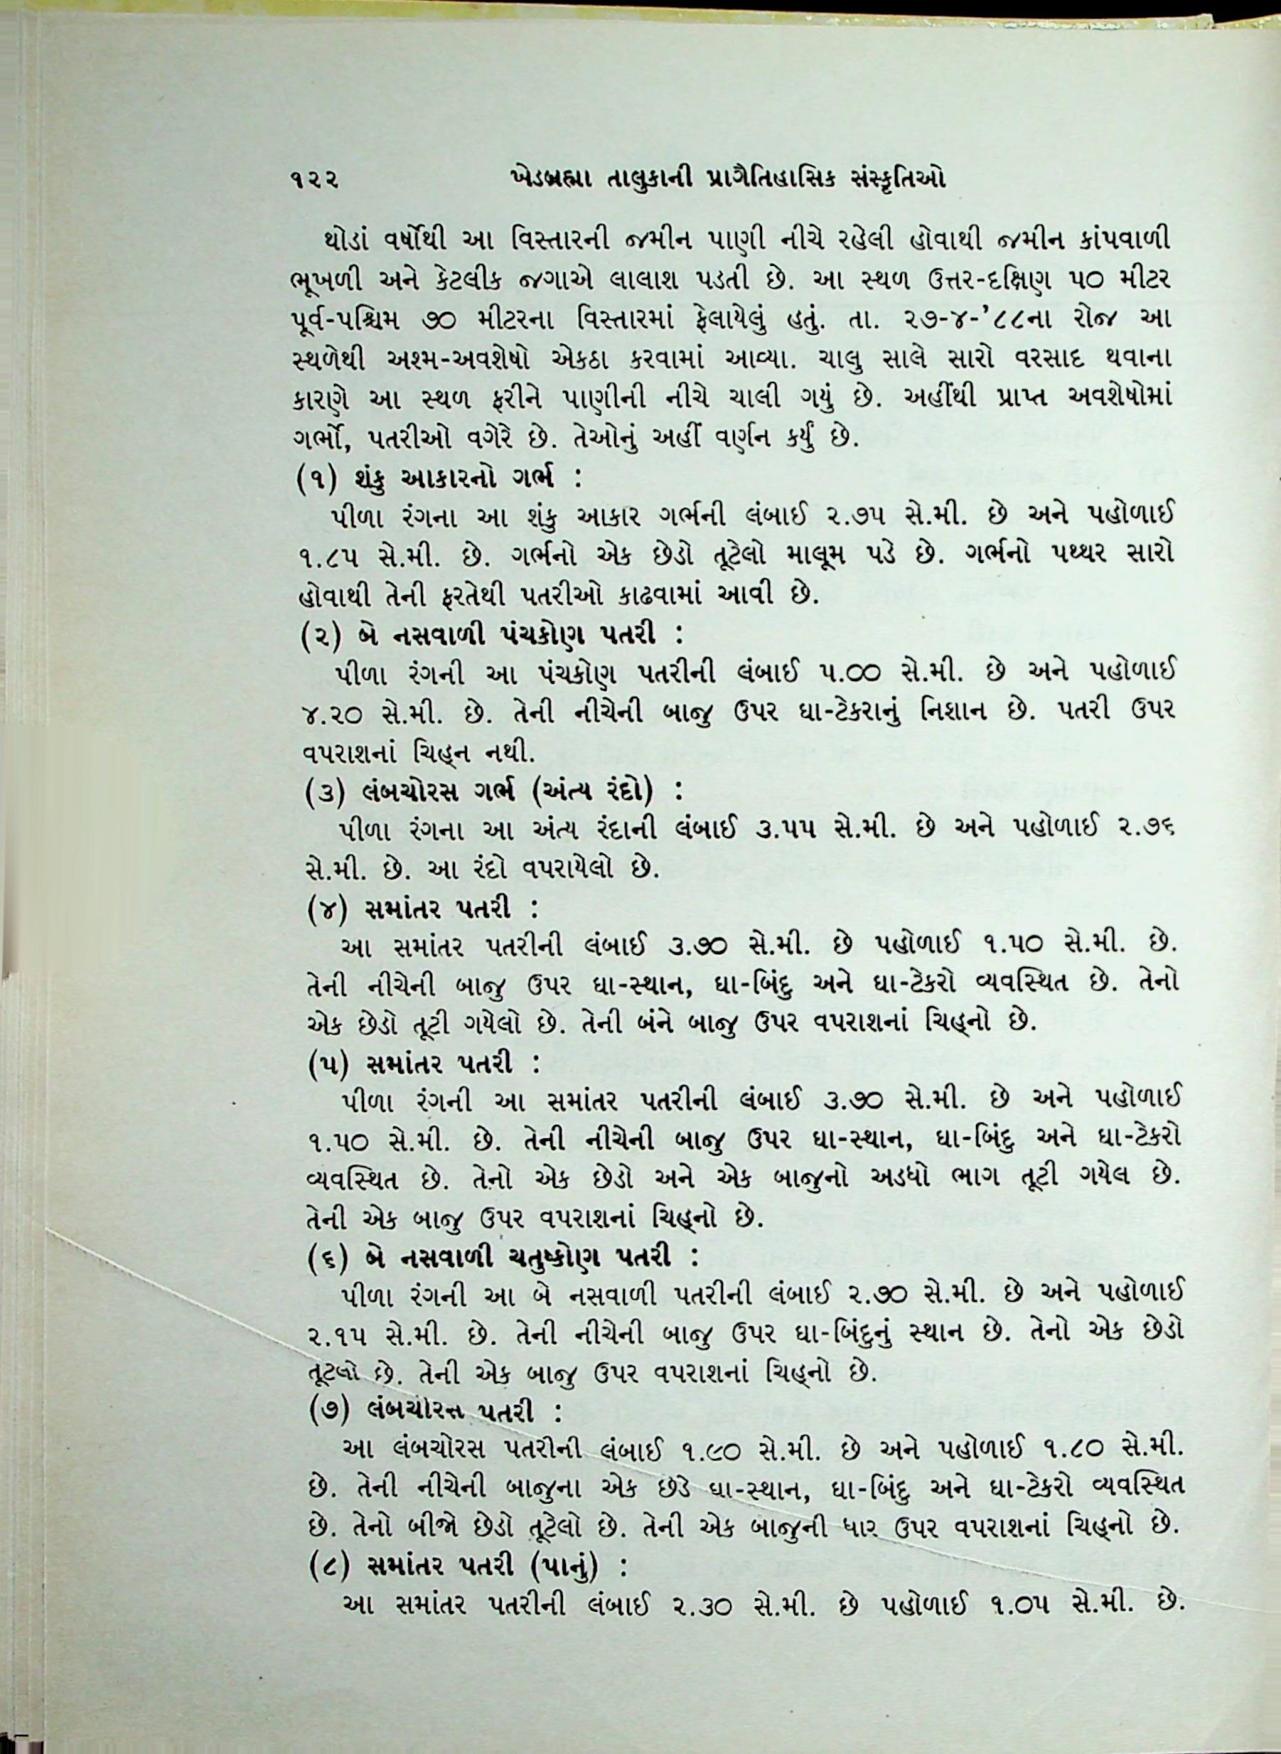 ૧૨૨ ખેડબ્રહ્મા તાલુકાની પ્રાગૈતિહાસિક સંસ્કૃતિઓ
થોડાં વર્ષોથી આ વિસ્તારની જમીન પાણી નીચે રહેલી હોવાથી જમીન કાંપવાળી
ભૂખળી અને કેટલીક જગાએ લાલાશ પડતી છે. આ સ્થળ ઉત્તર-દક્ષિણ ૫૦ મીટર
પૂર્વ-પશ્ચિમ ૭૦ મીટરના વિસ્તારમાં ફેલાયેલું હતું. તા. ૨૭-૪-'૮૮ના રોજ આ
સ્થળેથી અશ્મ-અવશેષો એકઠા કરવામાં આવ્યા. ચાલુ સાલે સારો વરસાદ થવાના
કારણે આ સ્થળ ફરીને પાણીની નીચે ચાલી ગયું છે. અહીંથી પ્રાપ્ત અવશેષોમાં
ગર્ભો, પતરીઓ વગેરે છે. તેઓનું અહીં વર્ણન કર્યું છે.
(૧) શંકુ આકારનો ગર્ભ :
પીળા રંગના આ શંકુ આકાર ગર્ભની લંબાઈ ૨.૭૫ સે.મી. છે અને પહોળાઈ
૧.૮૫ સે.મી. છે. ગર્ભનો એક છેડો તૂટેલો માલૂમ પડે છે. ગર્ભનો પથ્થર સારો
હોવાથી તેની ફરતેથી પતરીઓ કાઢવામાં આવી છે.
(૨) બે નસવાળી પંચકોણ પતરી :
પીળા રંગની આ પંચકોણ પતરીની લંબાઈ ૫.૦૦ સે.મી. છે અને પહોળાઈ
૪.૨૦ સે.મી. છે. તેની નીચેની બાજુ ઉપર ઘા-ટેકરાનું નિશાન છે. પતરી ઉપર
વપરાશનાં ચિહ્ન નથી.
(૩) લંબચોરસ ગર્ભ (અંત્ય રંદો) :
પીળા રંગના આ અંત્ય રંદાની લંબાઈ ૩.૫૫ સે.મી. છે અને પહોળાઈ ૨.૭૬
સે.મી. છે. આ રંદો વપરાયેલો છે.
(૪) સમાંતર પતરી :
આ સમાંતર પતરીની લંબાઈ ૩.૭૦ સે.મી. છે પહોળાઈ ૧.૫૦ સે.મી. છે.
તેની નીચેની બાજુ ઉપર ઘા-સ્થાન, ઘા-બિંદુ અને ઘા-ટેકરો વ્યવસ્થિત છે. તેનો
એક છેડો તૂટી ગયેલો છે. તેની બંને બાજુ ઉપર વપરાશનાં ચિહ્નો છે.
(૫) સમાંતર પતરી :
પીળા રંગની આ સમાંતર પતરીની લંબાઈ ૩.૭૦ સે.મી. છે અને પહોળાઈ
૧.૫૦ સે.મી. છે. તેની નીચેની બાજુ ઉપર ઘા-સ્થાન, ઘા-બિંદુ અને ઘા-ટેકરો
વ્યવસ્થિત છે. તેનો એક છેડો અને એક બાજુનો અડધો ભાગ તૂટી ગયેલ છે.
તેની એક બાજુ ઉપર વપરાશનાં ચિહ્નો છે.
(૬) બે નસવાળી ચતુષ્કોણ પતરી :
પીળા રંગની આ બે નસવાળી પતરીની લંબાઈ ૨.૭૦ સે.મી. છે અને પહોળાઈ
૨.૧૫ સે.મી. છે. તેની નીચેની બાજુ ઉપર ઘા-બિંદુનું સ્થાન છે. તેનો એક છેડો
તૂટલો છે. તેની એક બાજુ ઉપર વપરાશનાં ચિહ્નો છે.
(૭) લંબચોરસ પતરી :
આ લંબચોરસ પતરીની લંબાઈ ૧.૯૦ સે.મી. છે અને પહોળાઈ ૧.૮૦ સે.મી.
છે. તેની નીચેની બાજુના એક છેડે ઘા-સ્થાન, ઘા-બિંદુ અને ઘા-ટેકરો વ્યવસ્થિત
છે. તેનો બીજો છેડો તૂટેલો છે. તેની એક બાજુની ધાર ઉપર વપરાશનાં ચિહ્નો છે.
(૮) સમાંતર પતરી (પાનું) :
આ સમાંતર પતરીની લંબાઈ ૨.૩૦ સે.મી. છે પહોળાઈ ૧.૦૫ સે.મી. છે.